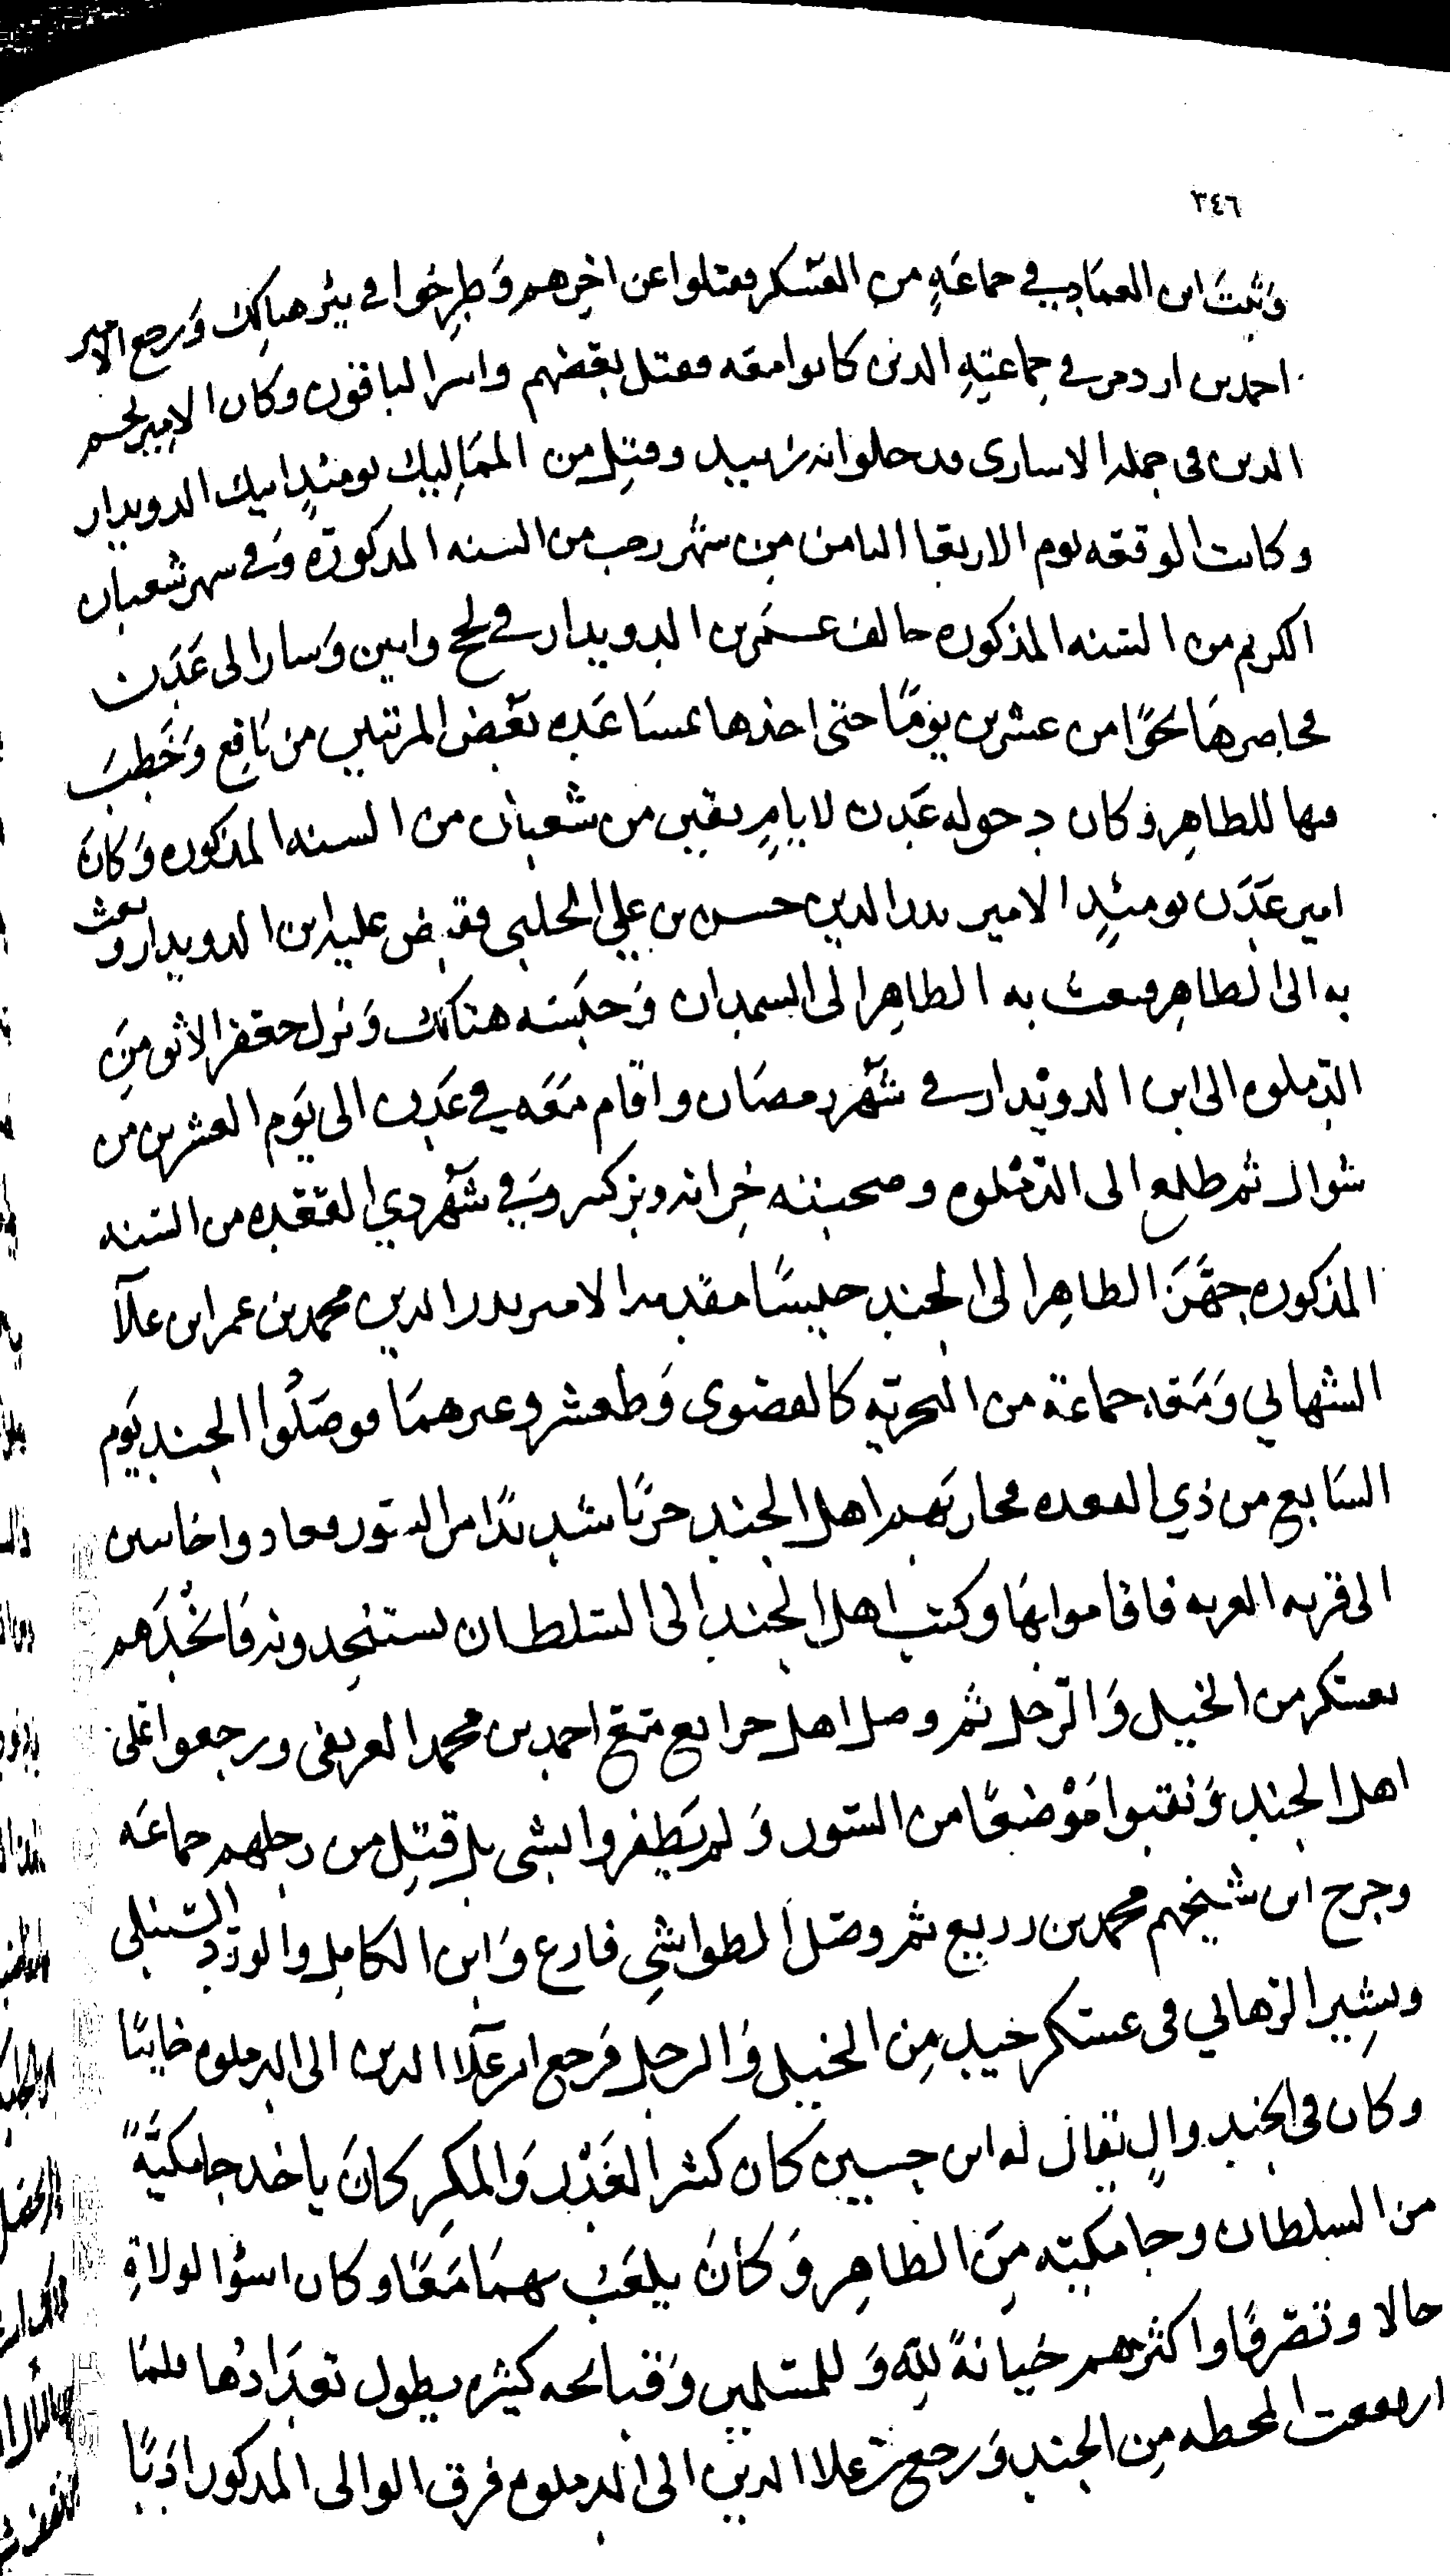 ٣٤٦
وثبت ابن العمادي في جماعةٍ من العسكر فقتلوا عن اخرهم وطرحوا في بئر هنالك ورجع الامير
احمد بن ازدمر في جماعته الذين كانوا معه فقتل بعضهم واسر الباقون وكان الامير نجم
الدين في جملة الاسارى فدخلوا به زبيد وقتل من المماليك يومئذٍ ايبك الدويدار
وكانت الوقعه يوم الاربعا الثامن من شهر رجب من السنه المذكورة وفي شهر شعبان
الكريم من السنه المذكوره خالف عمر بن الدويدار في لحج وابين وسار الى عدن
فحاصرها نحوًا من عشرين يومًا حتى اخذها بمساعده بعض المرتبين من يافع وخطب
فيها للظاهر وكان دخوله عدن لايامٍ بقين من شعبان من السنه المذكوره وكان
امير عدن يومئذٍ الامير بدر الدين حسن بن علي الحلبي فقبض عليه ابن الدويدار وبعث
به الى الظاهر فبعث به الظاهر الى السمدان وحبسه هنالك ونزل جعفر الاثو من
الدملوه الى ابن الدويدار في شهر رمضان واقام معه في عدن الى يوم العشرين من
شوال ثم طلع الى الدملوه وصحبته خزانه وبز كسر وفي شهر ذي القعده من السنه
المذكوره جهز الظاهر الى الجند جيشًا مقدمه الامير بدر الدين محمد بن عمر ابن علآ
الشهابي ومعه جماعة من البحريه كالفضوى وطعشر وغيرهما فوصلوا الجند يوم
السابع من ذي القعده فحاربهم اهل الجند حربًا شديدًا من السور فعادوا خاسين
الى قريه العربه فاقاموا بها وكتب اهل الجند الى السلطان يستنجدونه فانجدهم
بعسكر من الخيل والرجل ثم وصل اهل حرابع مع احمد بن محمد العريفي ورجعوا على
اهل الجند ونقبوا موضعًا من السور ولم يظفروا بشي بل قتل من رجلهم جماعه
وجرح ابن شيخهم محمد بن ربيع ثم وصل الطواشي فارع وابن الكامل والورد السنبلي
وبشير الزهابي في عسكر جيد من الخيل والرجل فرجع ابن علآ الدين الى الدملوه خايبًا
وكان في الجند والٍ يقال له ابن حسين كان كثير الغدر والمكر كان ياخذ جامكيةً
من السلطان وجامكيته من الظاهر وكان يلعب بهما معًا وكان اسؤا الولاةِ
حالا وتصرفًا واكثرهم خيانةً لله وللمسلمين وقبائحه كثيره يطول تعدادها فلما
ارتفعت المحطه من الجند ورجع بن علا الدين الى الدملوه فرق الوالى المذكور ادبًا